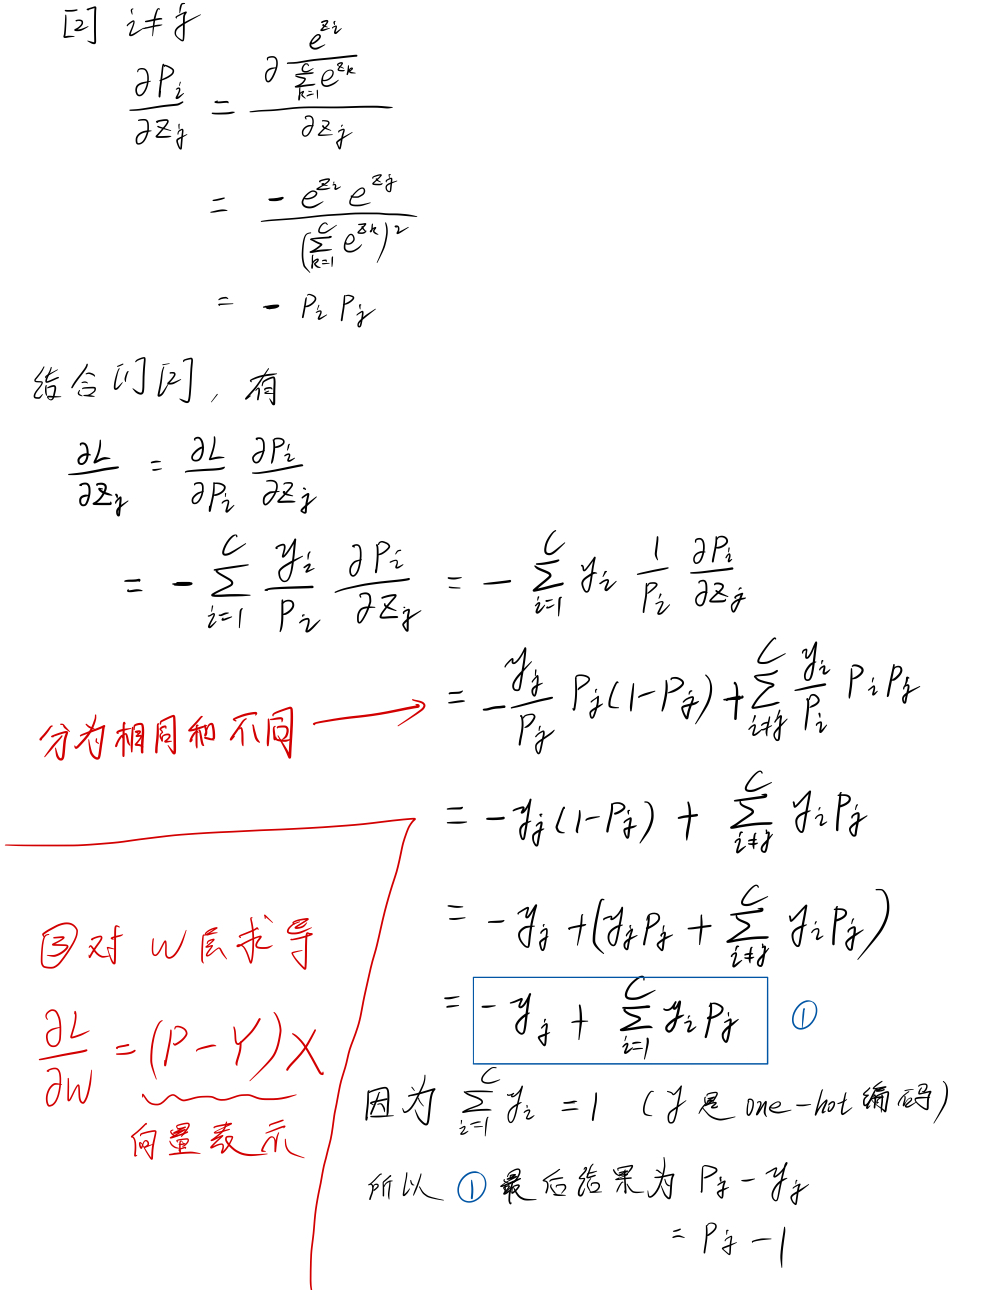 [2] i≠j
∂Pᵢ/∂zⱼ = ∂(e^{zᵢ}/∑_{k=1}^{C} e^{zₖ})/∂zⱼ
= -e^{zᵢ} e^{zⱼ}/(∑_{k=1}^{C} e^{zₖ})²
= - Pᵢ Pⱼ
结合[1][2], 有
∂L/∂zⱼ = ∂L/∂Pᵢ ∂Pᵢ/∂zⱼ
= -∑_{i=1}^{C} yᵢ/Pᵢ ∂Pᵢ/∂zⱼ = -∑_{i=1}^{C} yᵢ 1/Pᵢ ∂Pᵢ/∂zⱼ
分为相同和不同 → = -yⱼ/Pⱼ Pⱼ(1-Pⱼ) + ∑_{i≠j}^{C} yᵢ/Pᵢ PᵢPⱼ
= -yⱼ(1-Pⱼ) + ∑_{i≠j}^{C} yᵢPⱼ
= -yⱼ + (yⱼPⱼ + ∑_{i≠j}^{C} yᵢPⱼ)
= -yⱼ + ∑_{i=1}^{C} yᵢPⱼ ①
因为 ∑_{i=1}^{C} yᵢ = 1 (y是 one-hot 编码)
所以 ① 最后结果为 Pⱼ - yⱼ
= Pⱼ - 1
③对 W 层求导
∂L/∂W = (P-Y)X
向量表示